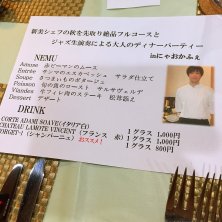 新美シェフの秋を先取り絶品フルコースと
ジャズ生演奏による大人のディナーパーティー
inにゃおかふぇ
NEMU
Amuse 赤ピーマンのムース
Entrée サンマのエスカベッシュ サラダ仕立て
Soupe さつまいものポタージュ
Poisson 旬の魚のロースト サルサヴェルデ
Viandes 牛フィレ肉のステーキ 松茸添え
Dessert デザート
DRINK
CORTE ADAMI SOAVE(イタリア白) 1グラス 1,000円
CHATEAU LAMOTE VINCENT(フランス 赤) 1グラス 1,000円
FORGET-1(シャンパーニュ) おススメ! 1グラス 800円